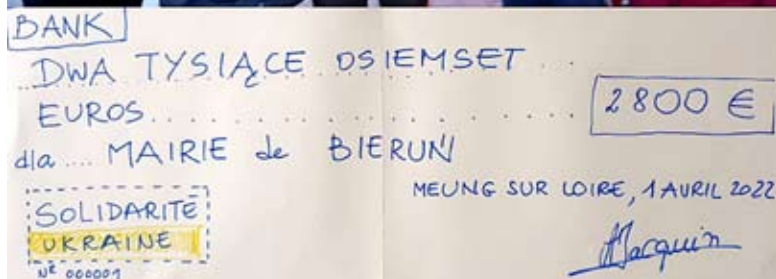 BANK
DWA TYSIĄCE OSIEMSET ..
EUROS..............
2800 €
dla .... MAIRIE de BIERUŃ
MEUNG SUR LOIRE, 1 AVRIL 2022
SOLIDARITE
UKRAINE
Nº 000001
Jacquin